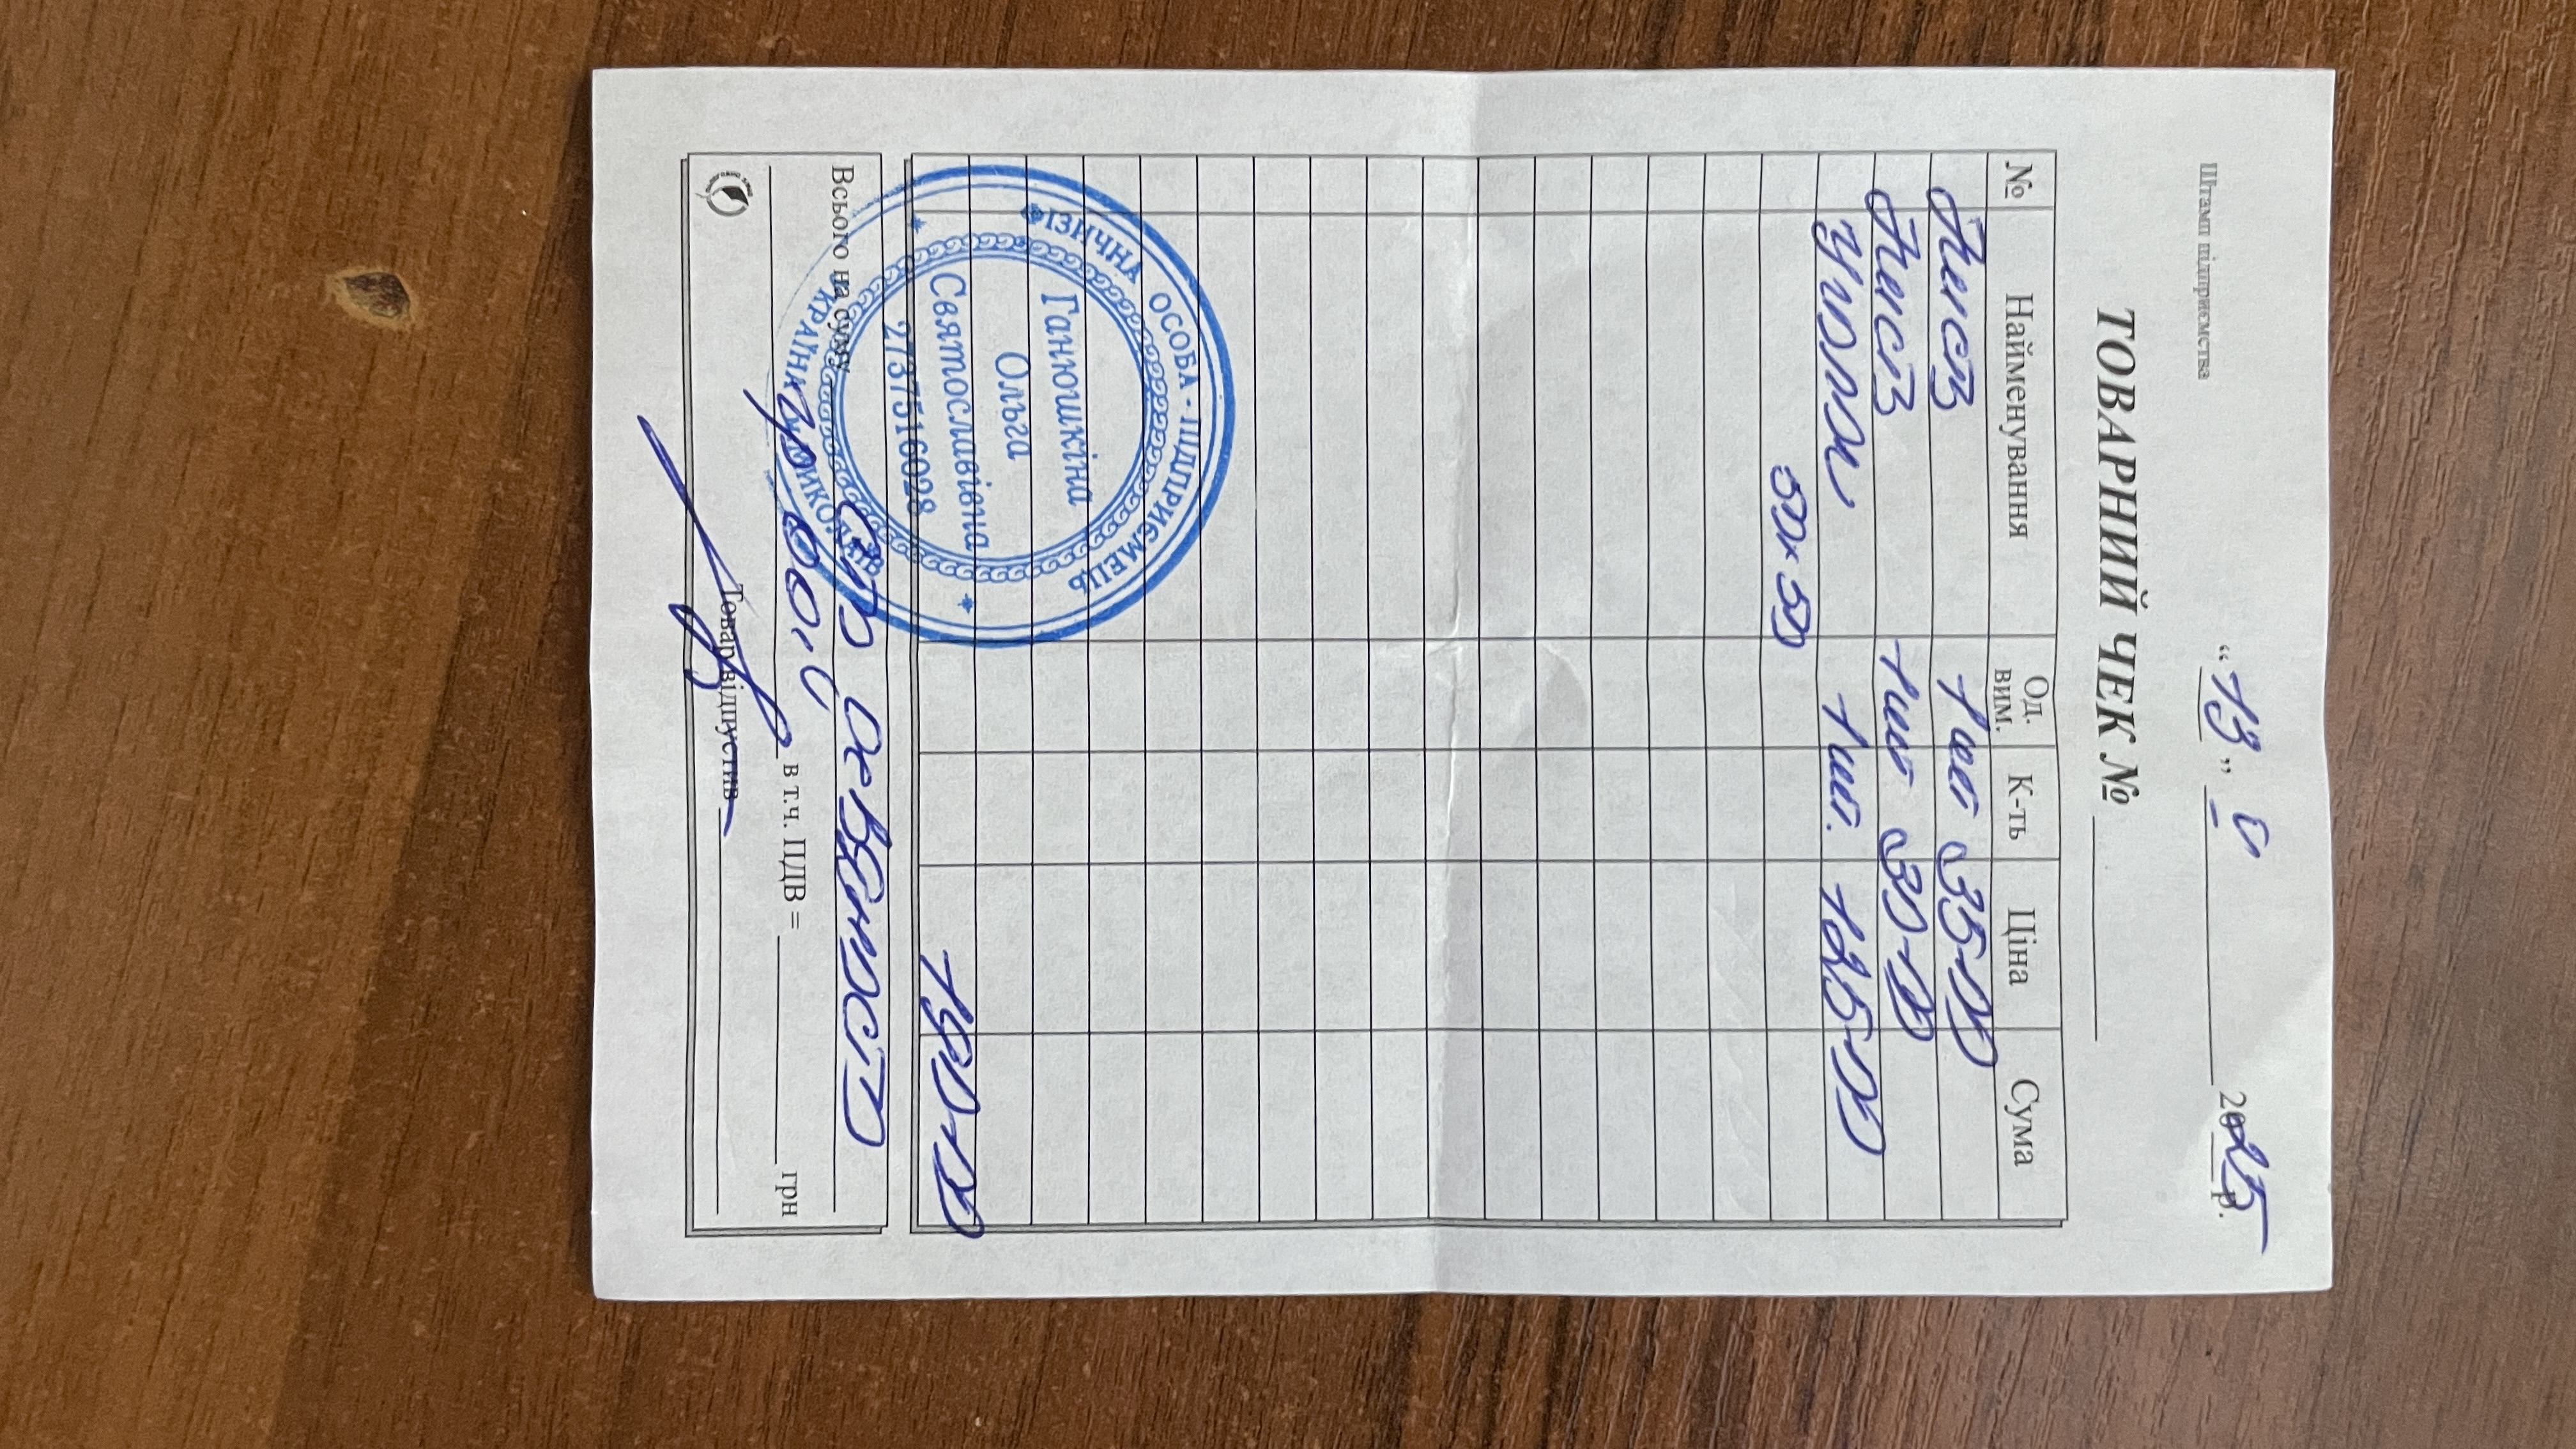 Штамп підприємства
“13” V 2025 р.
ТОВАРНИЙ ЧЕК №
№ Найменування Од. вим. К-ть Ціна Сума
Кисть 1 шт 35-00
Кисть 1 шт 30-00
Уголок 1 шт. 125-00
50x50
190-00
ФІЗИЧНА ОСОБА - ПІДПРИЄМЕЦЬ
Ганюшкіна
Ольга
Святославівна
2737516028
УКРАЇНА м.МИКОЛАЇВ
Всього на суму сто девяносто
гр 00 в т.ч. ПДВ = грн
Товар відпустив